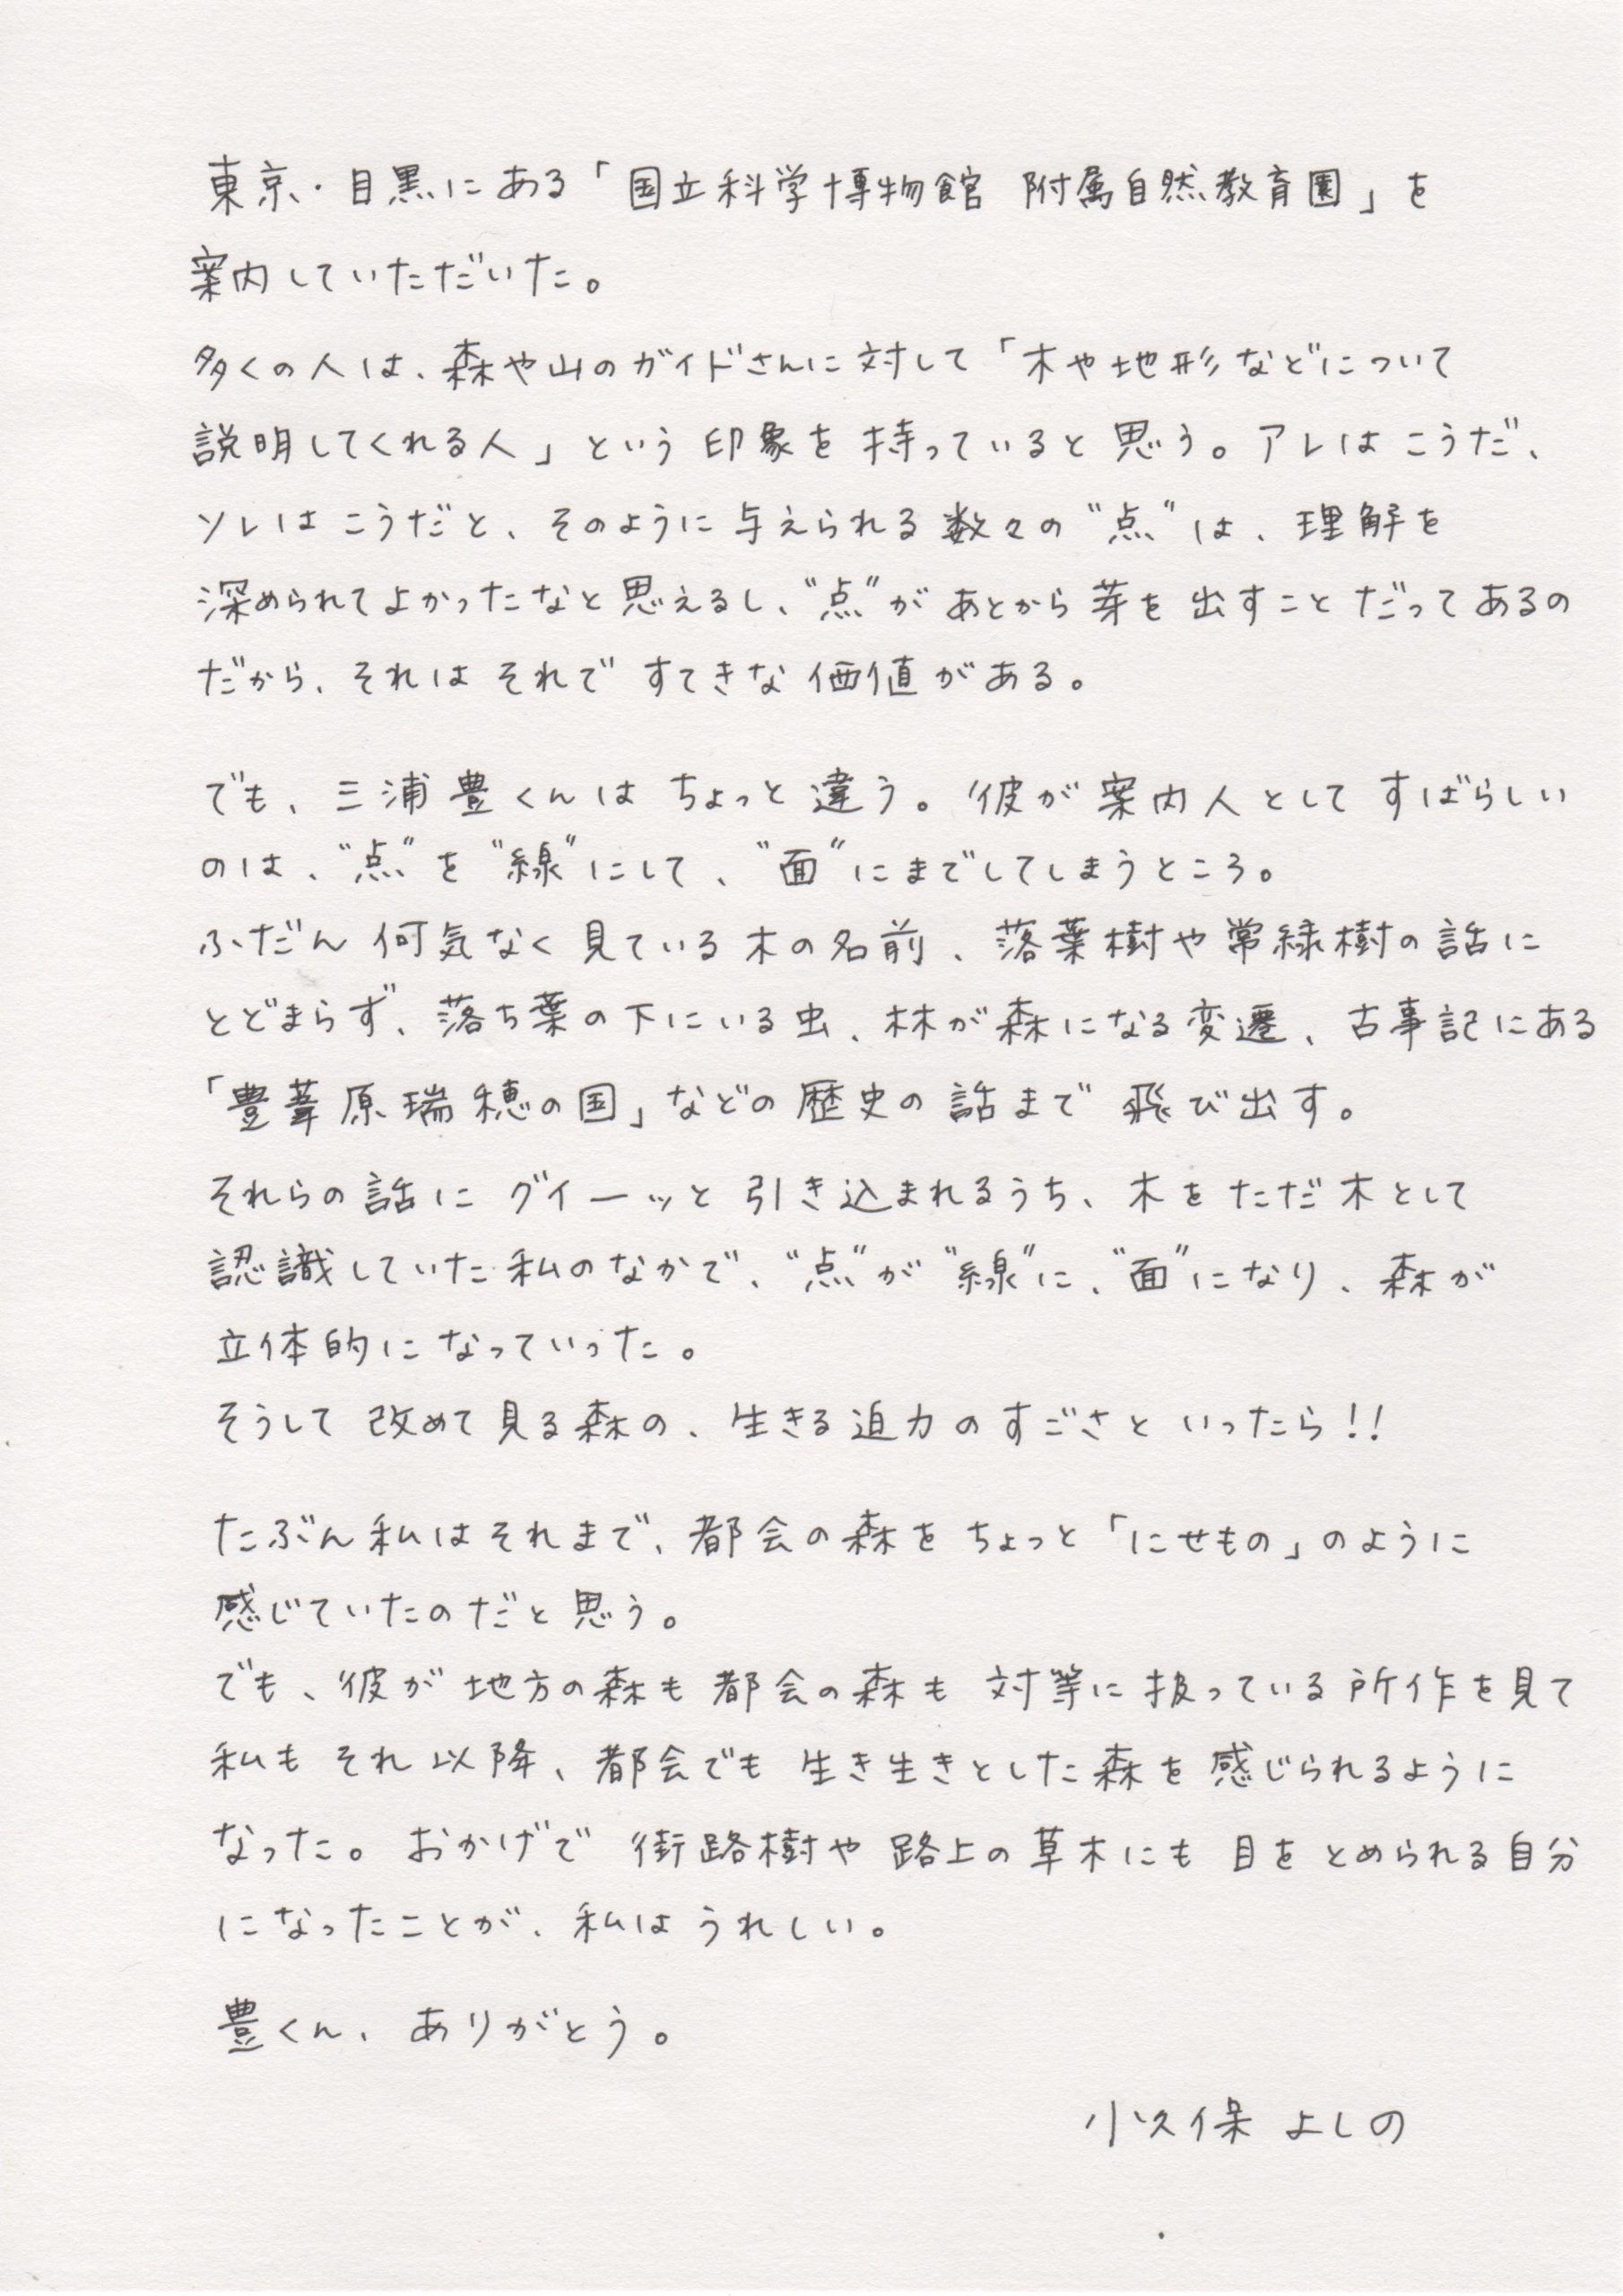 東京・目黒にある「国立科学博物館 附属自然教育園」を
案内していただいた。
多くの人は、森や山のガイドさんに対して「木や地形などについて
説明してくれる人」という印象を持っていると思う。アレはこうだ、
ソレはこうだと、そのように与えられる数々の“点”は、理解を
深められてよかったなと思えるし、“点”があとから芽を出すことだってあるの
だから、それはそれですてきな価値がある。
でも、三浦豊くんはちょっと違う。彼が案内人としてすばらしい
のは、“点”を“線”にして、“面”にまでしてしまうところ。
ふだん何気なく見ている木の名前、落葉樹や常緑樹の話に
とどまらず、落ち葉の下にいる虫、林が森になる変遷、古事記にある
「豊葦原瑞穂の国」などの歴史の話まで飛び出す。
それらの話にグイーッと引き込まれるうち、木をただ木として
認識していた私のなかで、“点”が“線”に、“面”になり、森が
立体的になっていった。
そうして改めて見る森の、生きる迫力のすごさといったら!!
たぶん私はそれまで、都会の森をちょっと「にせもの」のように
感じていたのだと思う。
でも、彼が地方の森も都会の森も対等に扱っている所作を見て
私もそれ以降、都会でも生き生きとした森を感じられるように
なった。おかげで街路樹や路上の草木にも目をとめられる自分
になったことが、私はうれしい。
豊くん、ありがとう。
小久保 よしの